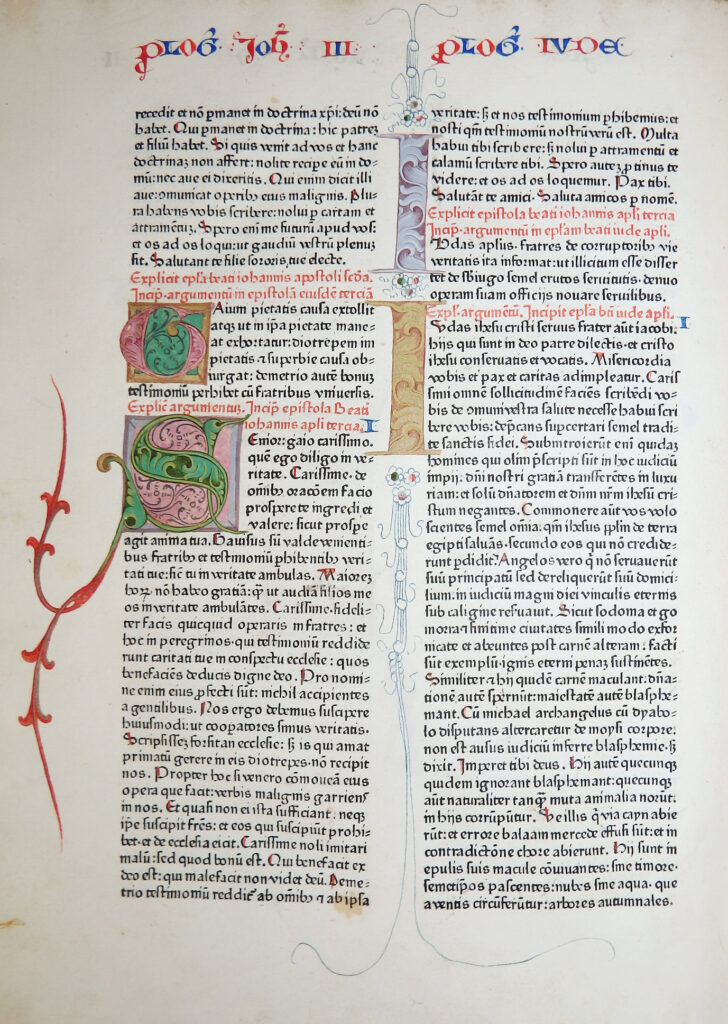 PLOG̃. Joh̃. III.
PLOG̃. IVDE
recedit et nō p̱manet in doctrina xp̄i: deū nō
habet. Qui p̱manet in doctrina: hic patrez
et filiū habet. Si quis venit ad vos et hanc
doctrinaz non affert: nolite recipe eū in do=
mū: nec aue ei dixeritis. Qui enim dicit illi
aue: omunicat operib̉ eius malignis. Plu=
ra habens vobis scribere: nolui p̱ cartam et
attramentuz. Spero eni me futurū apud vos:
et os ad os loqui: ut gaudiū vestrū plenuz
sit. Salutant te filie sororis tue electe.
Explicit epl̄a beati iohannis apostoli sc̄da.
Incip̱ argumentū in epistolā eiusdē terciā
GAium pietatis causa extollit
atq̱ ut in ip̄a pietate mane=
at exhortatur: diotrepem im
pietatis ⁊ superbie causa ob=
iurgat: demetrio autē bonuz
testimoniū perhibet cū fratribus vniuersis.
Explic̄ argumentuz. Incip̱ epistola Beati
iohannis apl̄i tercia. I
SEnior: gaio carissimo.
quē ego diligo in ve=
ritate. Carissime. de
om̄ib̉ orac̄oēm facio
prospere te ingredi et
valere: sicut prospe
agit anima tua. Gauisus sū valde venienti=
bus fratrib̉ et testimoniū p̱hibentib̉ veri=
tati tue: sic̄ tu in veritate ambulas. Maiorez
hoꝝ nō habeo gratiā: q̄ꝫ ut audiā filios me
os in veritate ambulātes. Carissime. fideli=
ter facis quicquid operaris in fratres: et
hoc in peregrinos. qui testimoniū reddide
runt caritati tue in conspectu ecclesie: quos
benefaciēs deducis digne deo. Pro nomi=
ne enim eius p̱fecti sūt: nichil accipientes
a gentilibus. Nos ergo debemus suscipere
huiusmodi: ut coop̱atores simus veritatis.
Scripsissez forsitan ecclesie: sꝫ is qui amat
primatū gerere in eis diotrepes. nō recipit
nos. Propter hoc si venero cōmoueā eius
opera que facit: verbis malignis garriens
in nos. Et quasi non ei ista sufficiant. neqꝫ
ip̄e suscipit fr̄es: et eos qui suscipiūt prohi=
bet. et de ecclesia eicit. Carissime noli imitari
malū: sed quod bonū est. Qui benefacit ex
deo est: qui malefacit non videt deū. Deme=
trio testimoniū reddit̉ ab om̄ib̉ ⁊ ab ipsa
veritate: sꝫ et nos testimonium p̱hibemus: et
nosti qm̄ testimoniū nostrū verū est. Multa
habui tibi scribere: sꝫ nolui p̱ attramentū et
calamū scribere tibi. Spero autez p̱tinus te
videre: et os ad os loquemur. Pax tibi.
Salutāt te amici. Saluta amicos p̱ nomē.
Explicit epistola beati iohannis apl̄i tercia
Incip̱ argumentū in ep̄lam beati iude apl̄i.
IVdas apl̄us. fratres de corruptorib̉ vie
veritatis ita informat: ut illicitum esse disser
tet de sb̉iugo semel erutos seruitutis. denuo
operam suam officijs nouare seruilibus.
Expl̄. argumentū. Incipit epl̄a bt̄i iude apl̄i.
IVdas ihesu cristi seruus frater aūt iacobi. I
hijs qui sunt in deo patre dilectis. et cristo
ihesu conseruatis et vocatis. Misericordia
vobis et pax et caritas adimpleatur. Caris
simi omnē sollicitudinē faciēs scribēdi vo=
bis de omuni vestra salute necesse habui scri
bere vobis: dep̱cans sup̱certari semel tradi=
te sanctis fidei. Submtroierūt eni quidaz
homines qui olim p̱scripti sūt in hoc iudiciū
impij. dn̄i nostri gratiā transferētes in luxu
riam: et solū dn̄atorem et dn̄m nr̄m ihesū cri
stum negantes. Commonere aūt vos volo
scientes semel omnia. qm̄ ihesus pp̱lm de terra
egipti saluās. secundo eos qui nō credide=
runt p̱didit. Angelos vero q̱ nō seruauerūt
suū principatū sed dereliquerūt suū domici=
lium. in iudiciū magni diei vinculis eternis
sub caligine reseruauit. Sicut sodoma et go
morra ⁊ finitime ciuitates simili modo exfor
nicate et abeuntes post carnē alteram. facti
sūt exemplū. ignis eterni penaz sustinētes.
Similiter ⁊ hij quidē carnē maculant: dn̄a=
tionē autē spernūt: maiestatē autē blasphe=
mant. Cū michael archangelus cū dyabo=
lo disputans altercaretur de moysi corpore.
non est ausus iudiciū inferre blasphemie. sꝫ
dixit. Imperet tibi deus. Hij autē quecunqꝫ
quidem ignorant blasphemant: quecunqꝫ
aūt naturaliter tanq̄ꝫ muta animalia norūt.
in hijs corrūpūtur. Ve illis q̱ via cayn abie
rūt: et errore balaam mercede effusi sūt: et in
contradictōne chore abierunt. Hij sunt in
epulis suis macule cōuiuantes: sine timore.
semetip̄os pascentes: nubes sine aqua. que
a ventis circūferūtur: arbores autumnales.